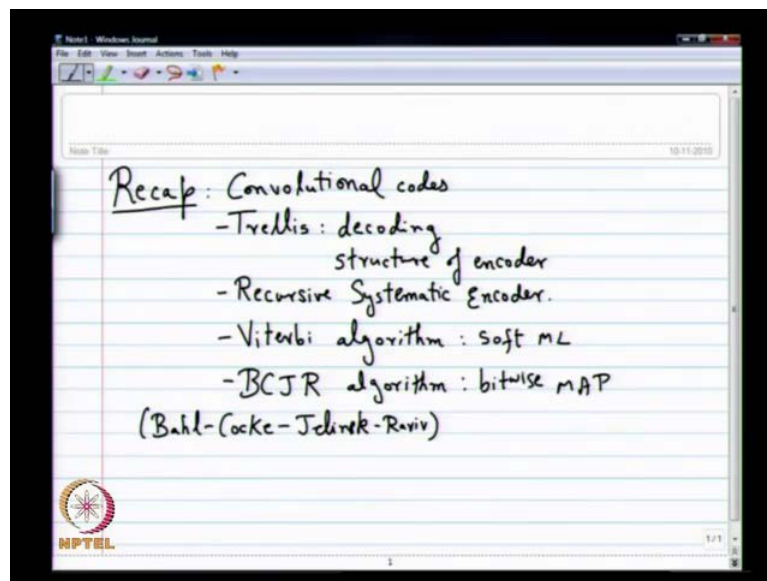 Note1 - Windows Journal
File Edit View Insert Actions Tools Help
Note Title
10-11-2010
Recap : Convolutional codes
- Trellis : decoding
structure of encoder
- Recursive Systematic Encoder.
- Viterbi algorithm : soft ML
- BCJR algorithm : bitwise MAP
(Bahl-Cocke-Jelinek-Raviv)
NPTEL
1/1
1